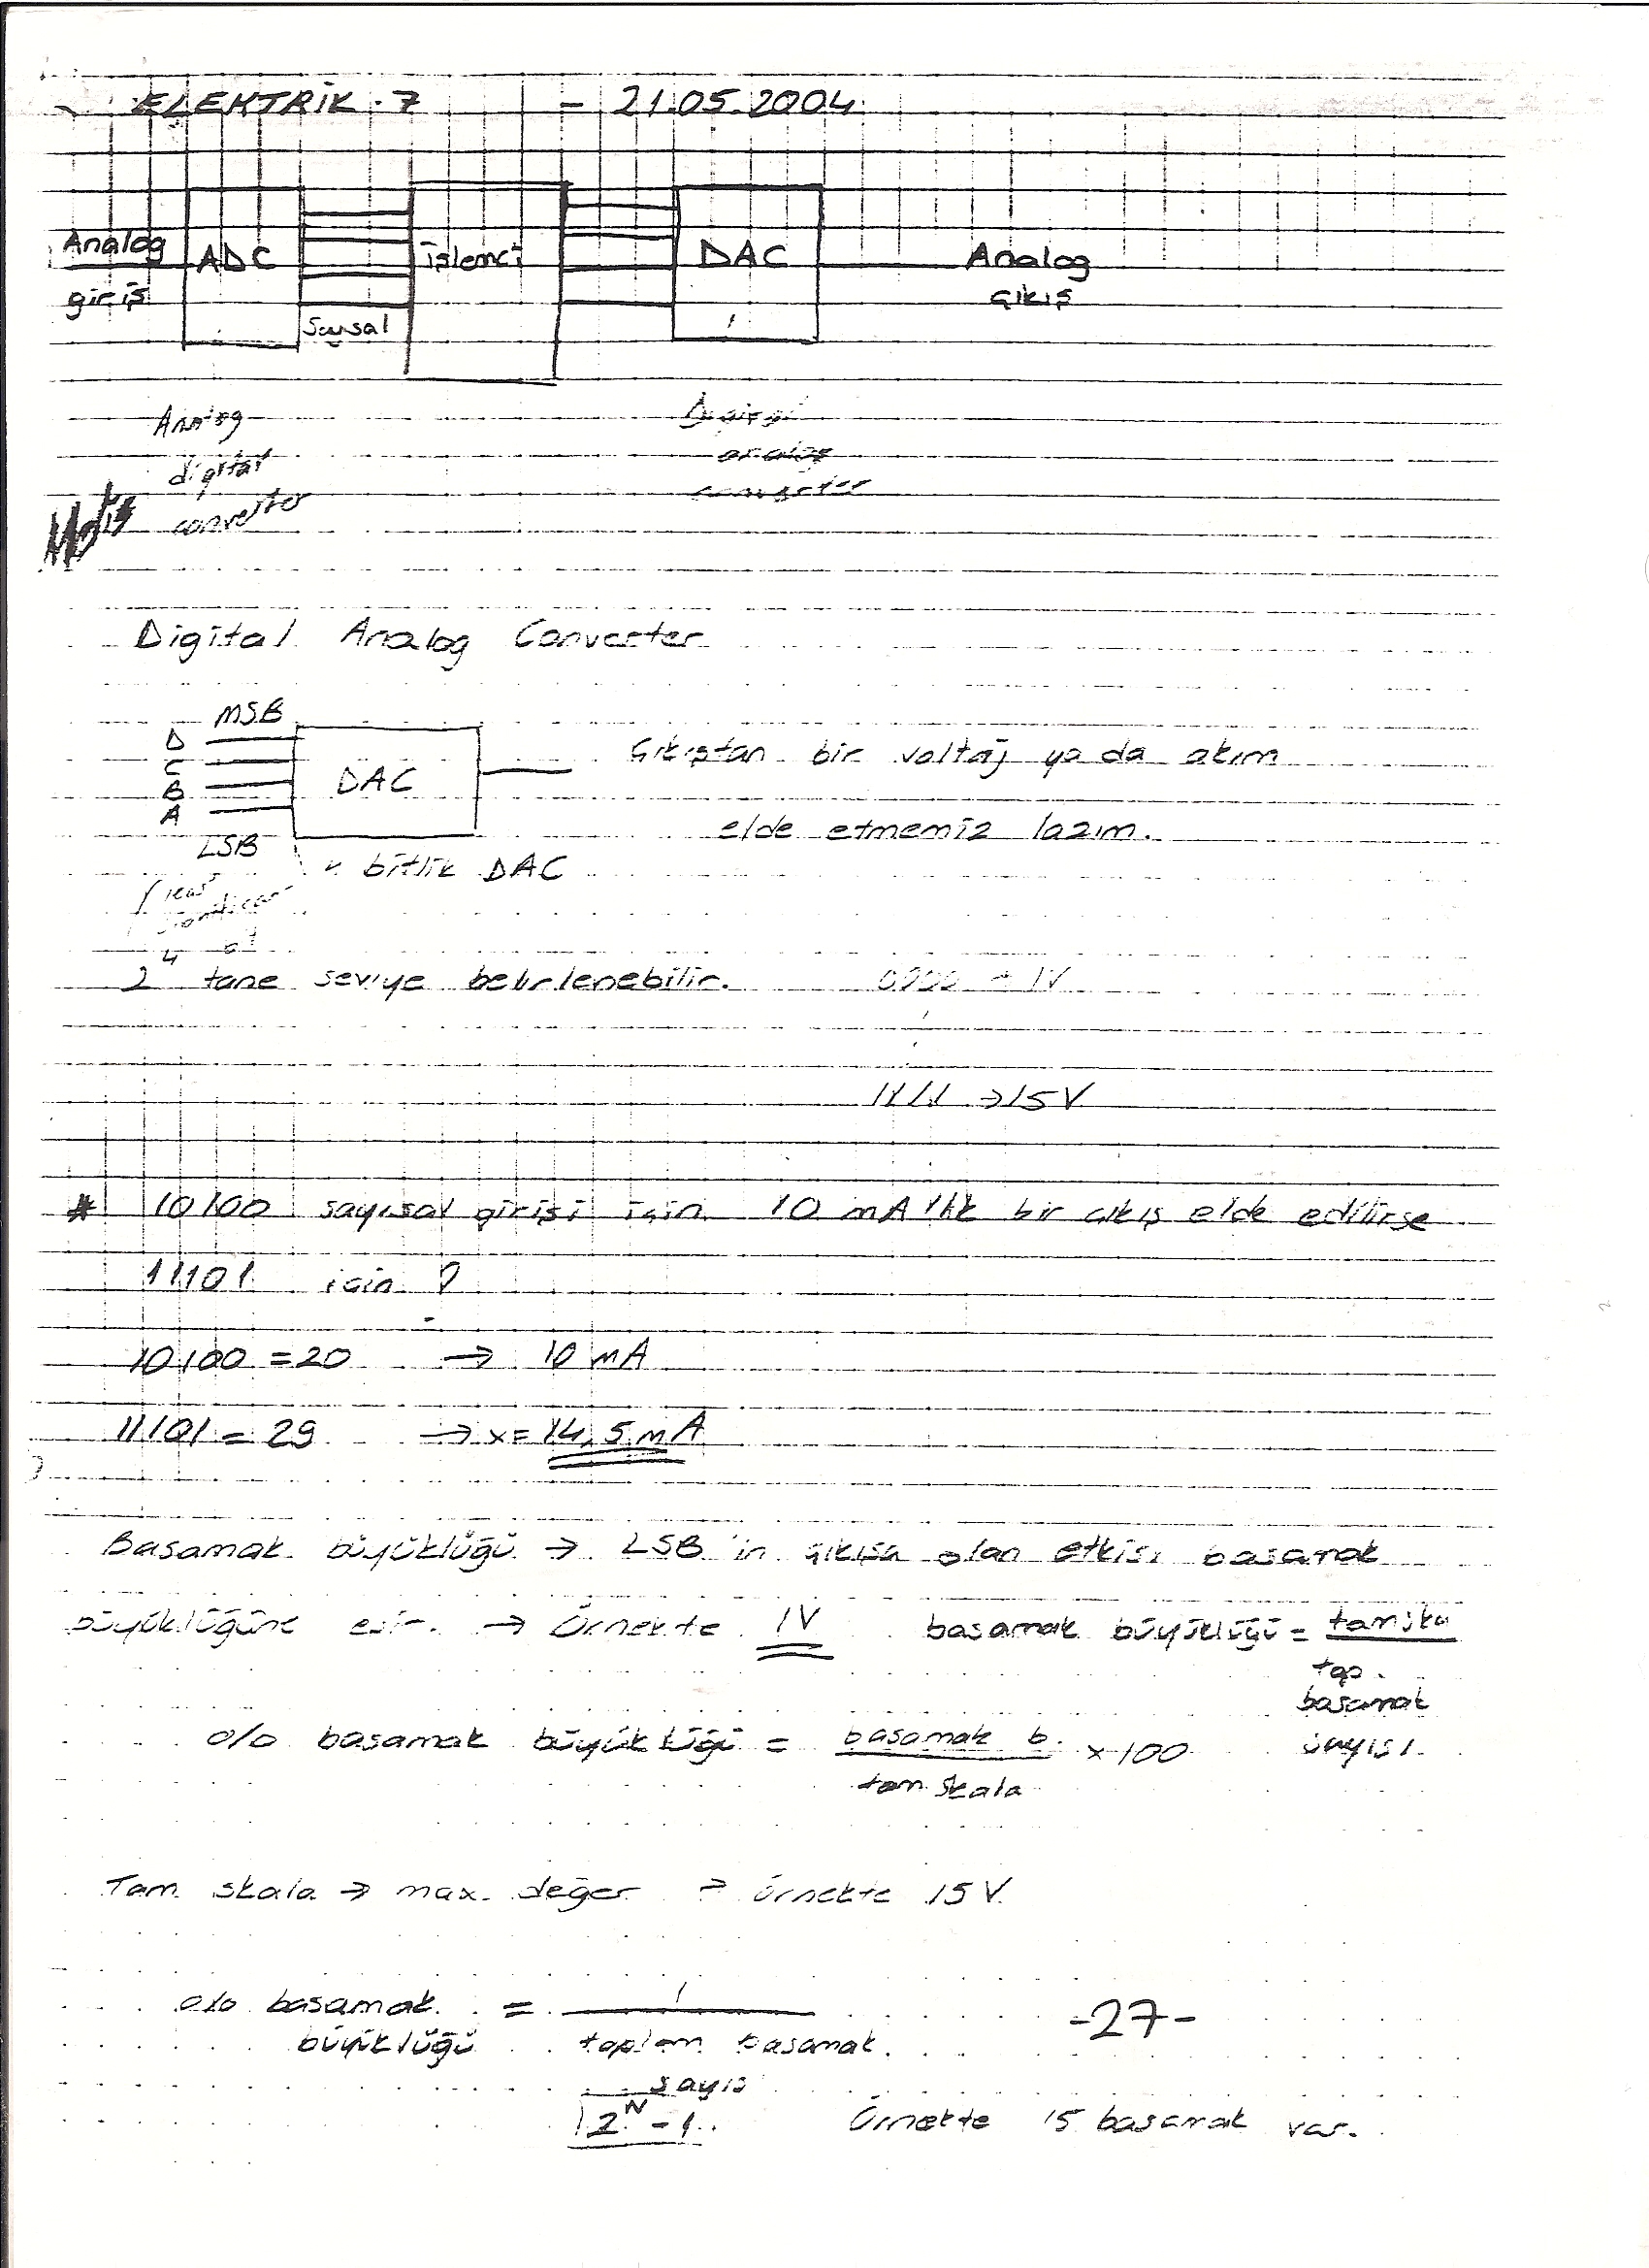 ELEKTRİK 7 - 21.05.2004
Analog giriş
ADC
Sayısal
işlemci
DAC
Analog çıkış
Analog
digital
converter
analog
converter
Digital Analog Converter
MSB
D
C
B
A
LSB
DAC
Çıkıştan bir voltaj ya da akım
elde etmemiz lazım.
bitlik DAC
2^4 tane seviye belirlenebilir.
1111 → 15 V
* 10100 sayısal girişi için 10 mA lık bir çıkış elde edilirse
11101 için ?
10100 = 20 → 10 mA
11101 = 29 → x = 14,5 mA
Basamak büyüklüğü → LSB'in çıkışa olan etkisi basamak
büyüklüğüne eşit. → Örnekte 1V basamak büyüklüğü = tam ska
top.
basamak
sayısı
% basamak büyüklüğü = basamak b. / tam skala × 100
Tam skala → max. değer → örnekte 15 V.
% basamak büyüklüğü = 1 / toplam basamak sayıs
2^N - 1
-27-
Örnekte 15 basamak var.